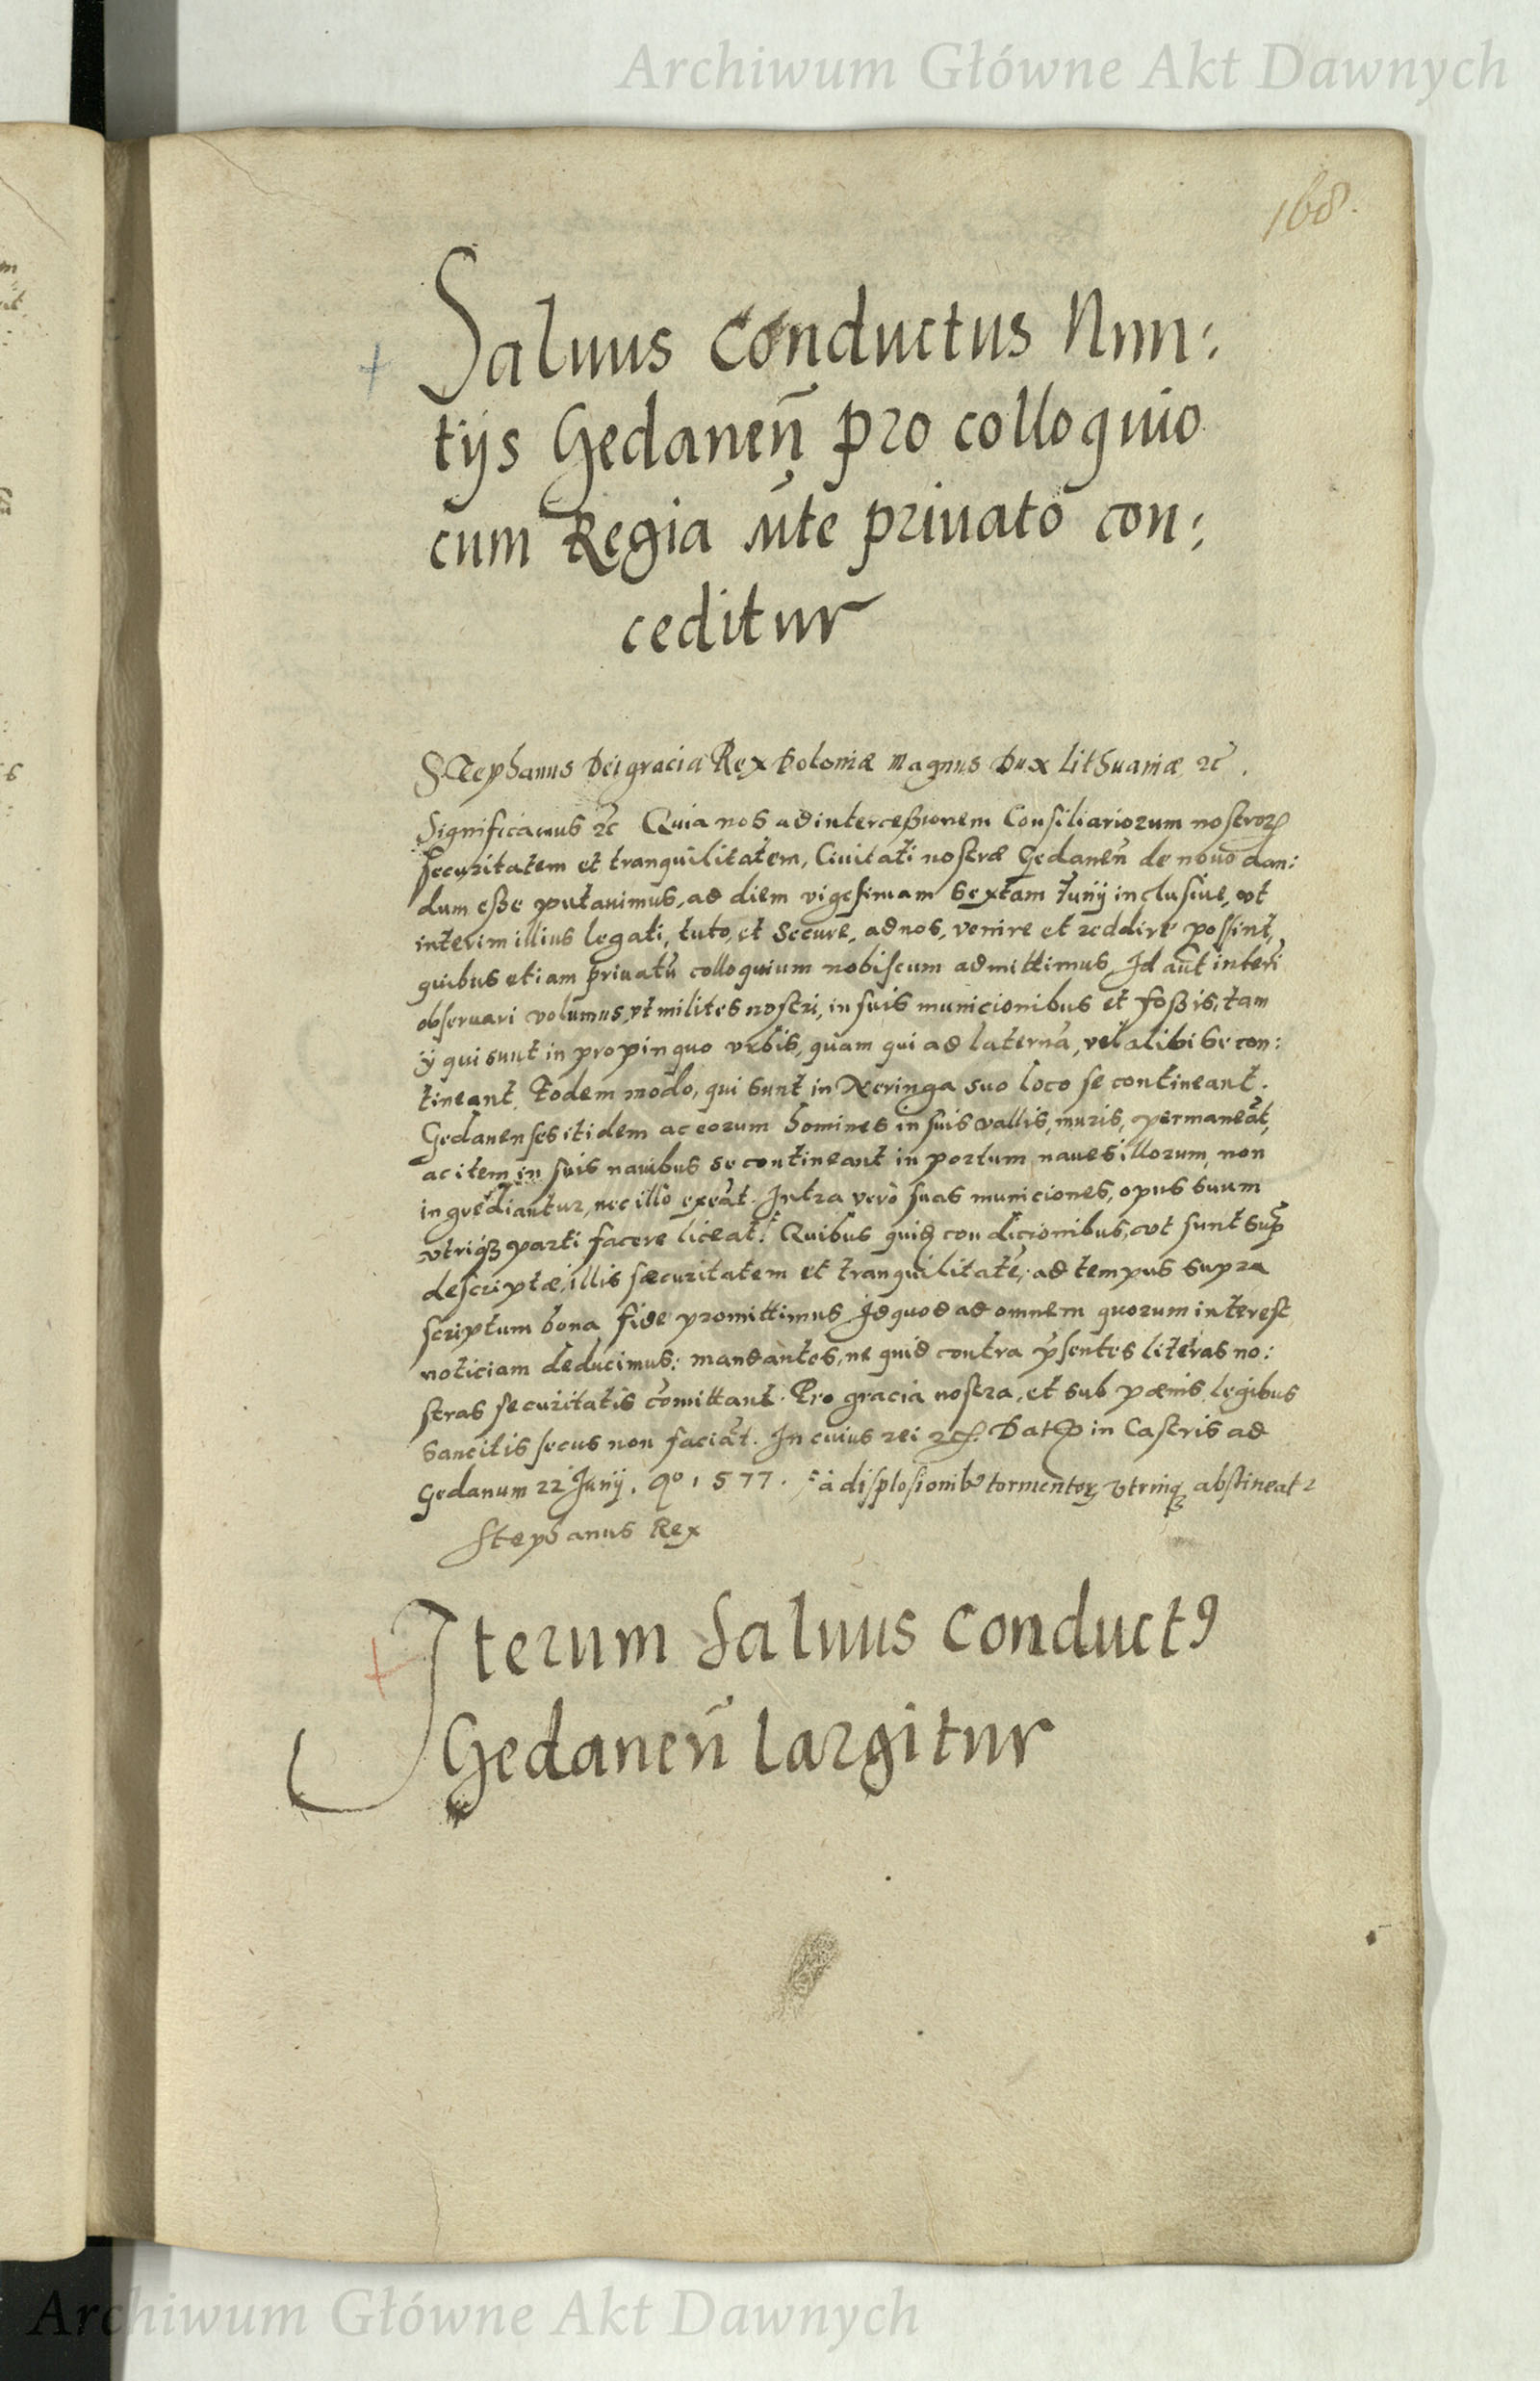 Archiwum Główne Akt Dawnych
168.
Saluus Conductus Nun:
tijs Gedanen̄ pro colloquio
cum Regia M̄te priuato con:
ceditur
Stephanus Dei gracia Rex Poloniæ Magnus Dux Lithuaniæ ꝛc̄.
Significamus ꝛc̄ Quia nos ad interceßionem Consiliariorum nostroꝝ
securitatem et tranquilitatem, Ciuitati nostræ Gedanen̄ de nouo dan:
dum eße putauimus, ad diem vigesimam Sextam Junij inclusiue, vt
interim illius legati, tuto, et Secure, ad nos, venire et reddire possint,
quibus etiam priuatū colloquium nobiscum admittimus Id aūt interī
obseruari volumus, vt milites nostri, in suis municionibus et foßis, tam
ij qui sunt in propinquo vrbis, quam qui ad laternā, vel alibi se con:
tineant. Eodem modo, qui sunt in Neringa suo loco se contineant.
Gedanenses itidem ac eorum homines in suis vallis, muris, permaneāt,
ac item in suis nauibus se contineant in portum naues illorum non
ingrediantur, nec illo exeāt. Intra verò suas municiones, opus suum
vtriqꝫ parti facere liceat. Quibus quidē condicionibus, vt sunt sup̄
descriptæ, illis sæcuritatem et tranquilitatē, ad tempus supra
scriptum bona fide promittimus Id quod ad omnem quorum interest
noticiam deducimus: mandantes, ne quid contra p̄sentes literas no:
stras securitatis cōmittant. Pro gracia nostra, et sub pœnis legibus
Sancitis secus non faciāt. In cuius rei ꝛc̄. Datꝭ in Castris ad
Gedanum 22 Junij. Aº 1577. à displosionibꝰ tormentoꝝ vtrinqꝫ abstineatꝛ
Stephanus Rex
Iterum Saluus Conductꝰ
Gedanen̄ largitur
Archiwum Główne Akt Dawnych